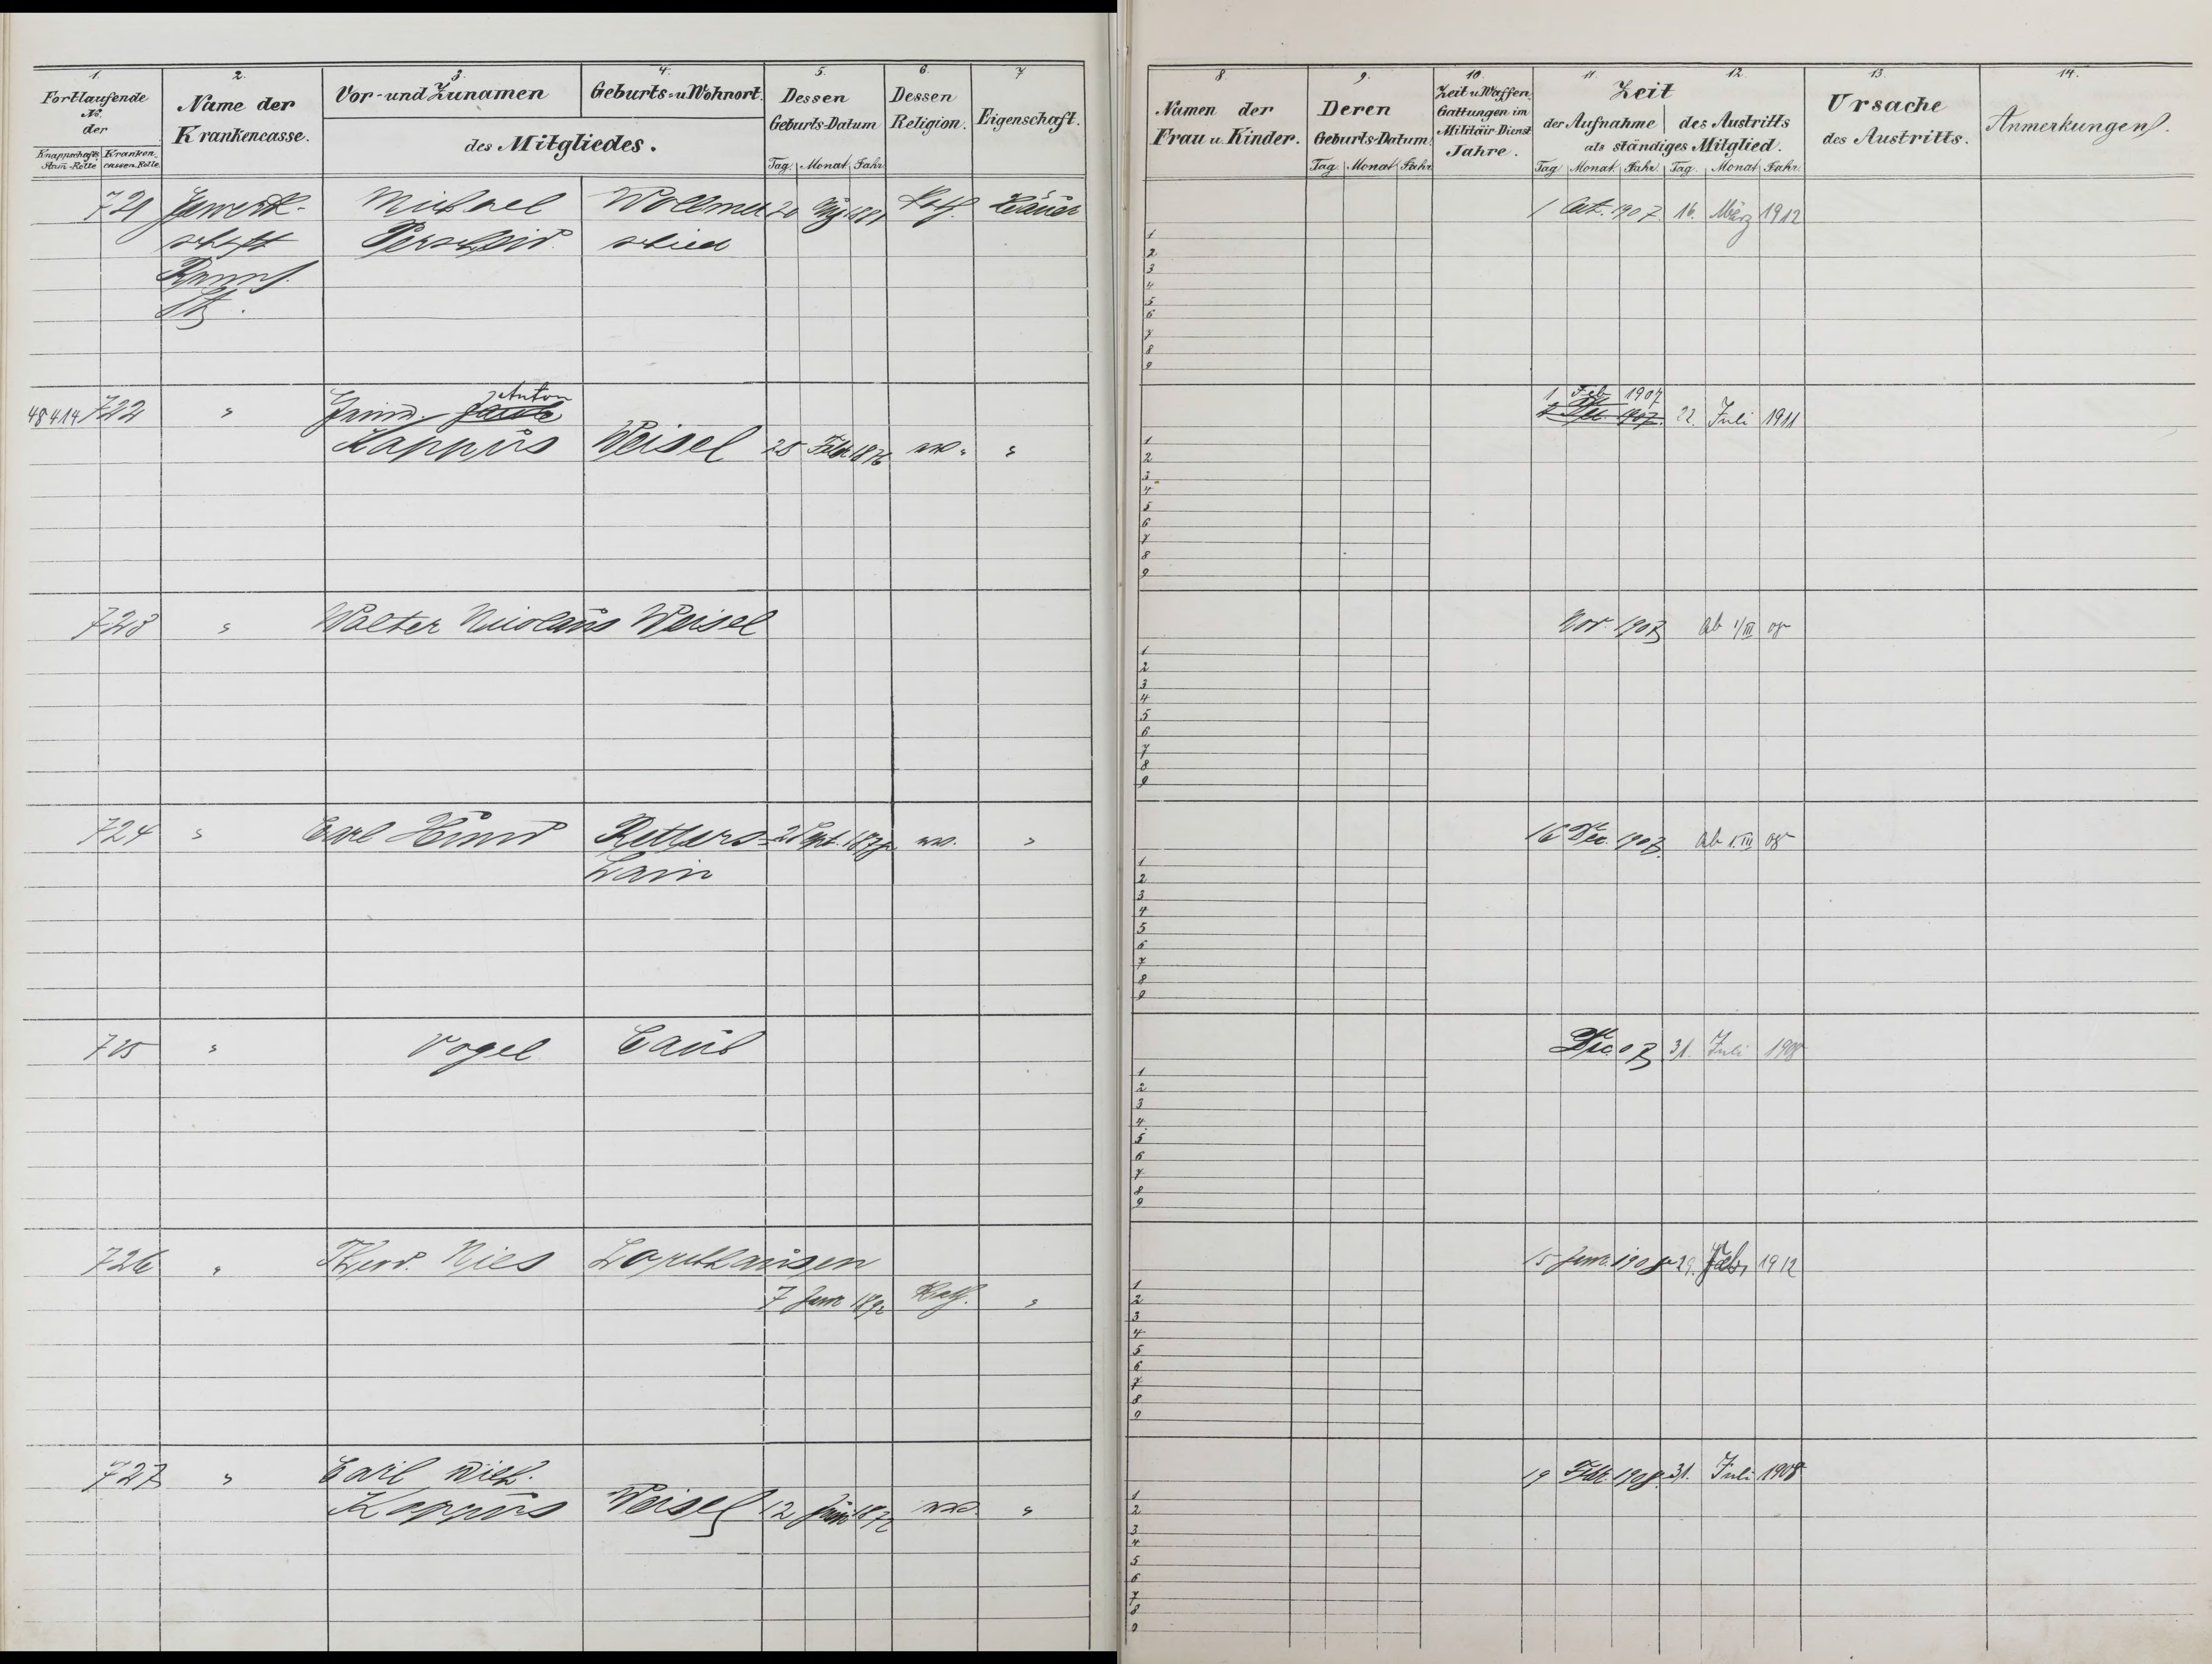 1. 2. 3. 4. 5. 6. 7
Fortlaufende No. der
Knappschafts Stam-Rolle Kranken-cassen-Rolle
Name der Krankencasse.
Vor- und Zunamen
Geburts- u Wohnort.
des Mitgliedes.
Dessen Geburts-Datum
Tag. Monat. Jahr.
Dessen Religion.
Eigenschaft.
8. 9. 10. 11. 12. 13. 14.
Namen der Frau u. Kinder.
Deren Geburts-Datum.
Tag. Monat. Jahr.
Zeit u. Waffen Gattungen im Militair Dienst Jahre.
Zeit
der Aufnahme des Austritts
als ständiges Mitglied.
Tag Monat. Jahr. Tag. Monat. Jahr.
Ursache des Austritts.
Anmerkungen.
721 Gewerk- Michael Wollmer 20 Kath. Häuer 1 Oct. 1907. 16. März 1912
schaft Perscheid schied
1
2
3
4
5
6
7
8
9
Anton 1 Feb 1907
48414 722 " 22. Juli 1911
Kappus Weisel 25 Febr 1876 ev. "
1
2
3
4
5
6
7
8
9
723 " Walter Nicolaus Weisel Nov. 1907 ab 1/III 08
1
2
3
4
5
6
7
8
9
724 " Carl Hund Retters- ev. " 16 Dec. 1907. ab 1.III 08
hain
1
2
3
4
5
6
7
8
9
725 " Vogel Caub Dec. 07 31. Juli 1908
1
2
3
4
5
6
7
8
9
726 " Nies Lorchhausen 15 Janr. 1908 29. Febr 1912
7 Kath. "
1
2
3
4
5
6
7
8
9
727 " Carl Wilh. 19 Febr. 1908. 31. Juli 1908
Kappus Weisel 12 1872 ev. "
1
2
3
4
5
6
7
8
9